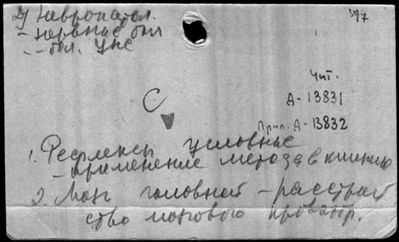 2) Невропатол.
- нервные бол
- бол. ЦНС
Чит.
А-13831
Прил. А-13832
С
1. Рефлексы условные
- применение метода в клинике
2. Мозг головной - расстрой
ство мозгового кровообр.